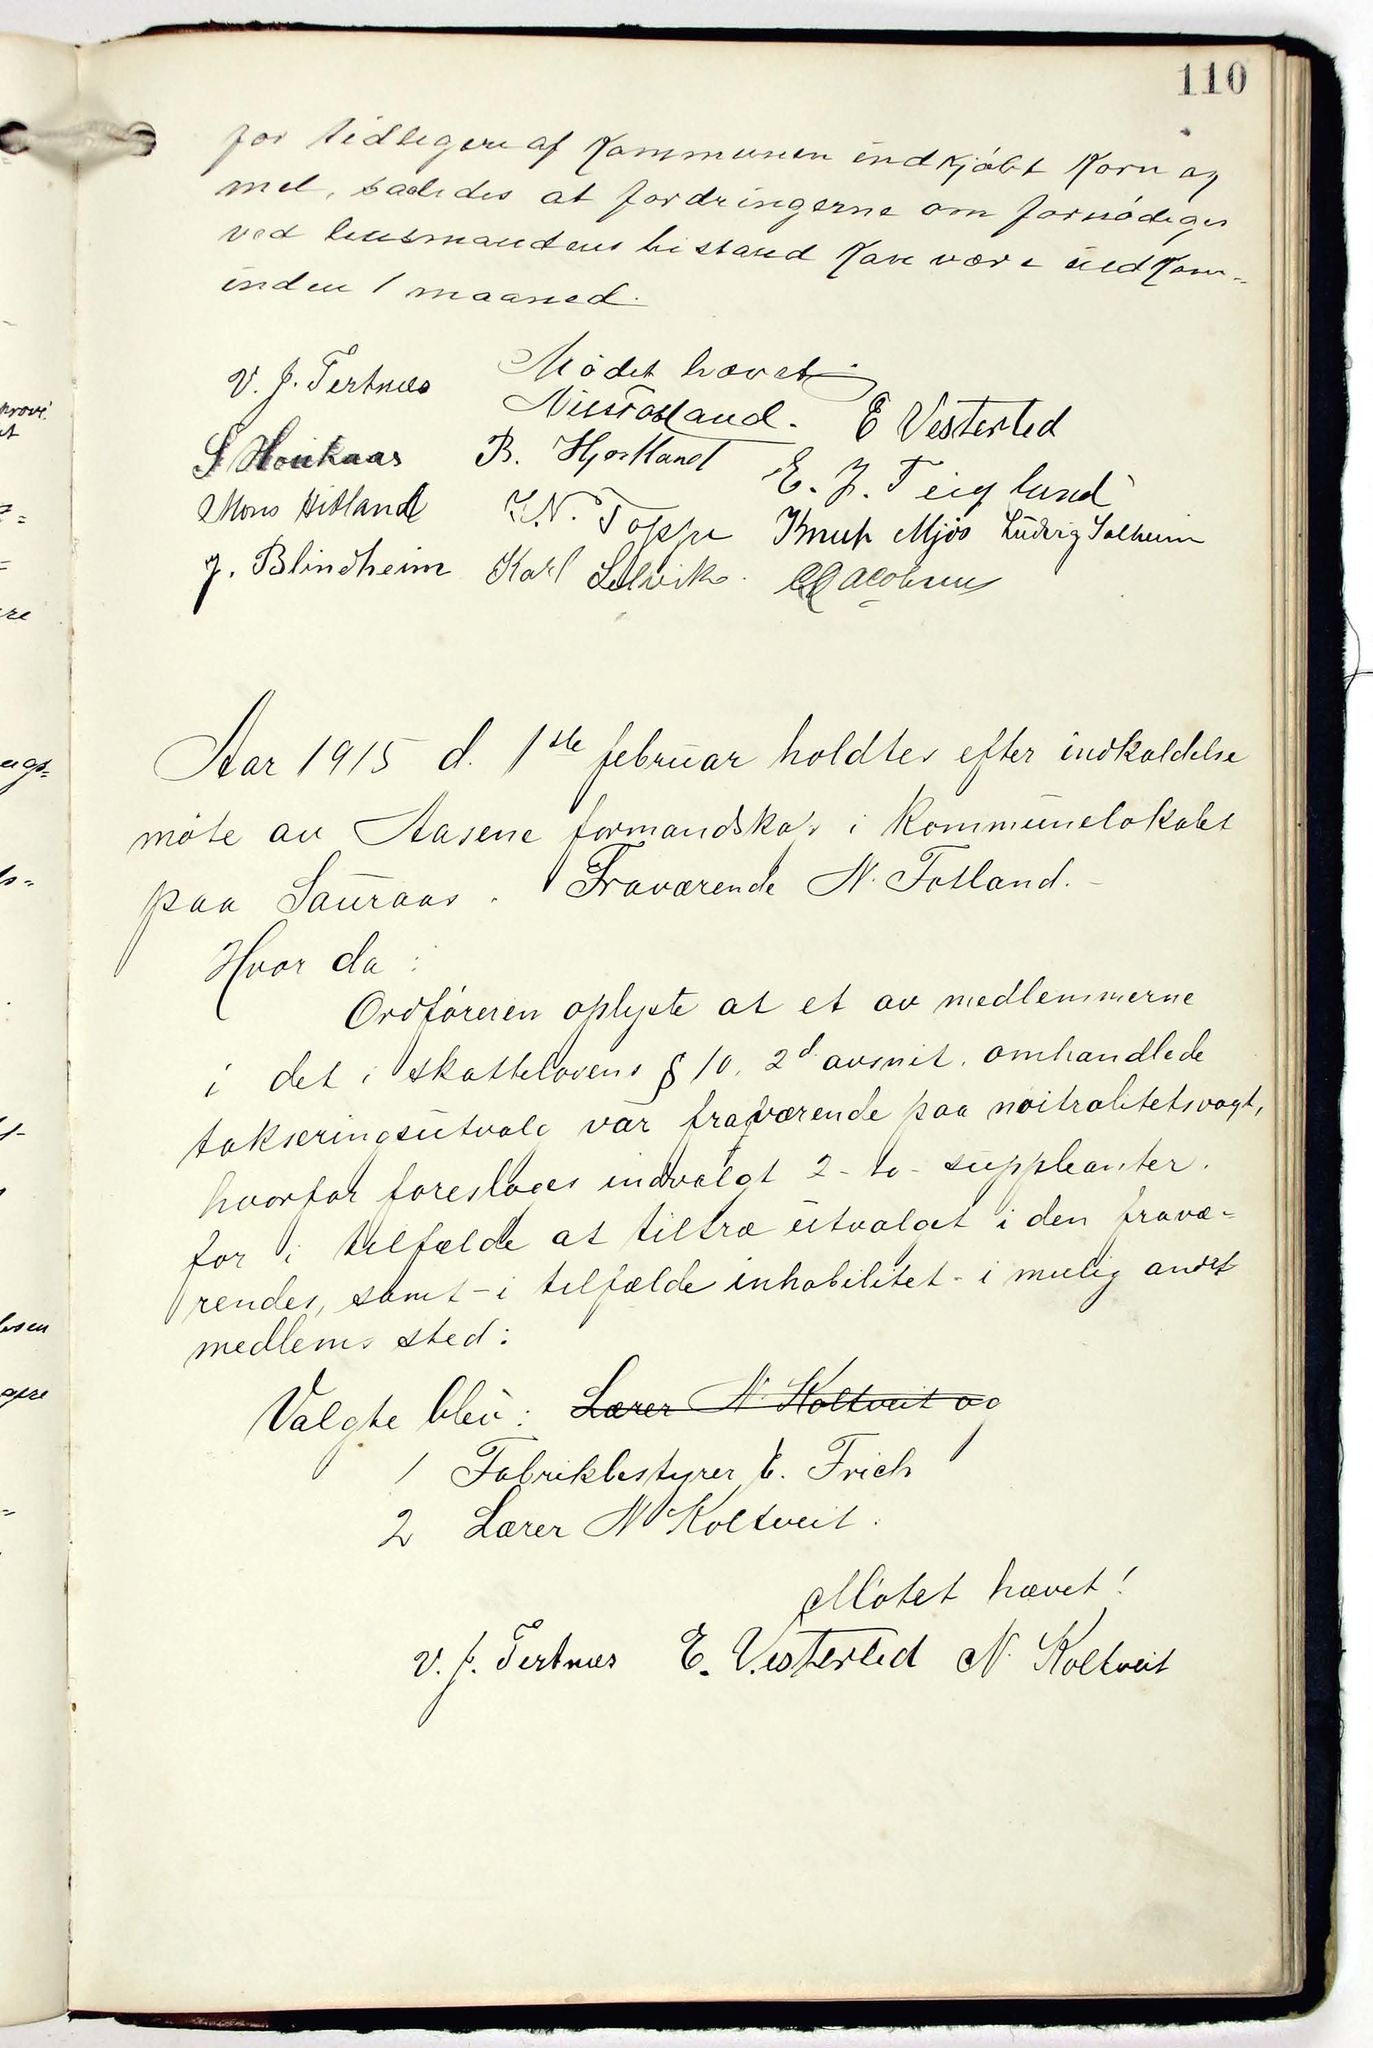 110
for tidligere af Kommunen indkjøbt Korn og
mel, saaledes at fordringerne om fornødiges
ved lensmandens bistand kan være indkom-
inden 1 maaned.
Mødet hævet
V. J. Tertnæs Nils Totland. E Vesterlid
S Høukaas B. Hjortland E. J. Teiglund
Mons Hitland J. N. Toppe Knut Mjøs Ludvig Solheim
J. Blindheim Karl Selvik. Jacobsen
Aar 1915 d. 1ste februar holdtes efter indkaldelse
møte av Aasene formandskap i kommunelokalet
paa Sauraas. Fraværende N. Totland. -
Hvor da :
Ordføreren oplyste at et av medlemmerne
i det i skattelovens § 10, 2d avsnit, omhandlede
takseringsutvalg var fraværende paa nøitralitetsvagt,
hvorfor foresloges indvalgt 2 - to - suppleanter.
for i tilfælde at tiltræ utvalget i den fravæ-
rendes, samt - i tilfælde inhabilitet - i mulig andet
medlems sted :
Valgte blev : Lærer N. Koltveit og
1 Fabrikbestyrer C. Frich
2 Lærer N Koltveit.
Møtet hævet !
V. J. Tertnæs E. Vesterlid N. Koltveit